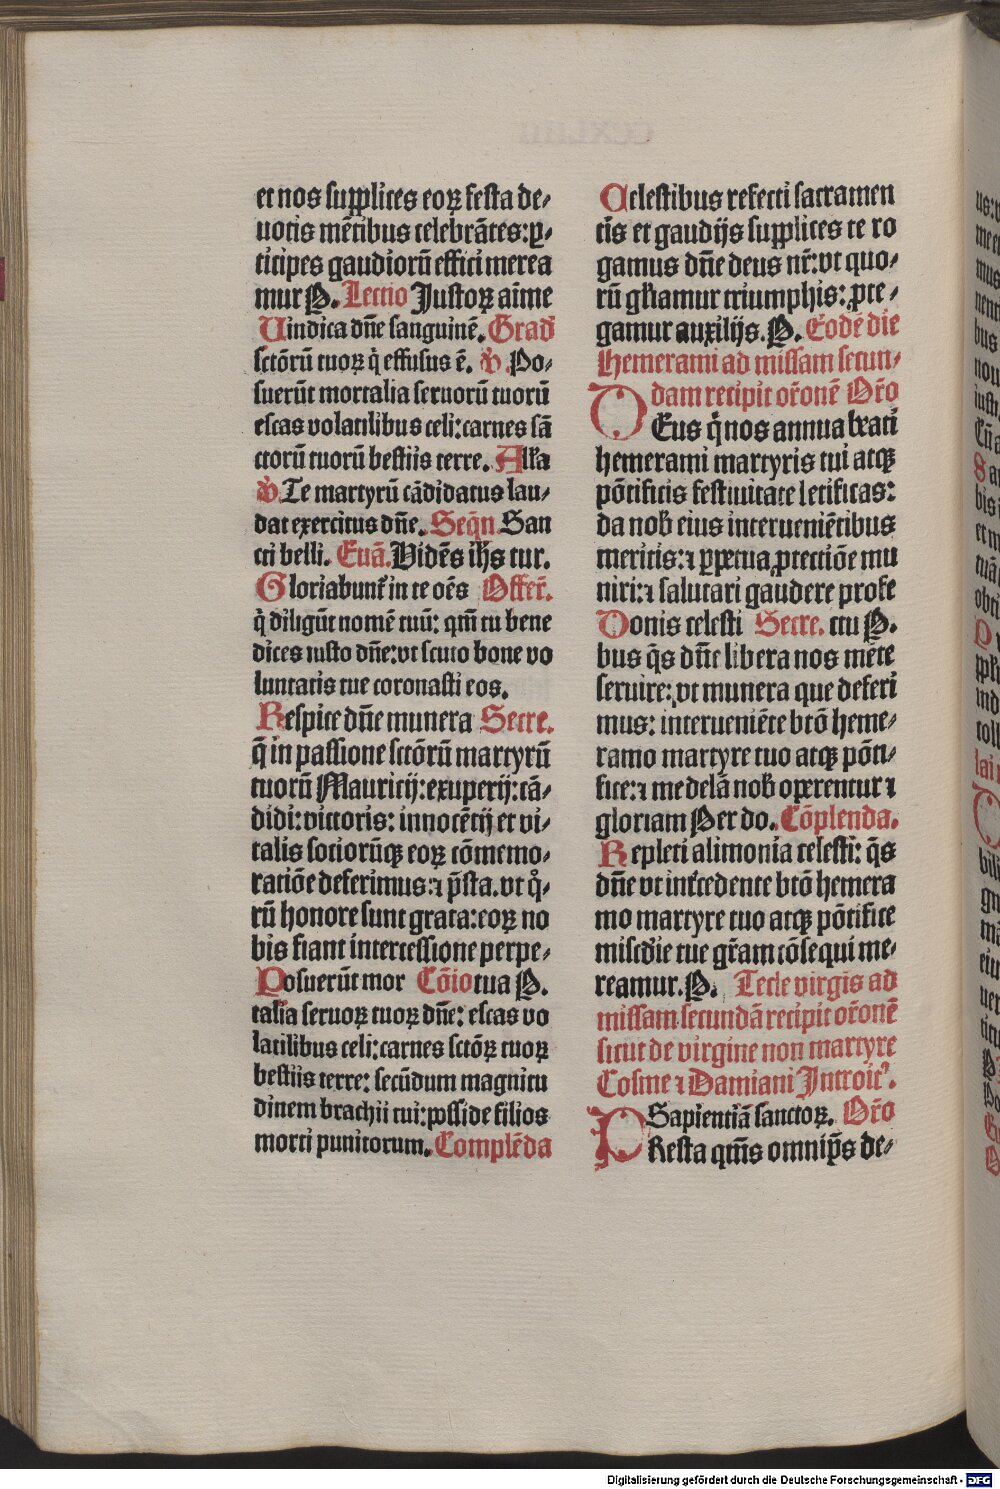 et nos supplices eoꝝ festa de⸗
uotis mẽtibus celebrãtes: ꝑ⸗
ticipes gaudiorũ effici merea
mur P. Lectio Justoꝝ aĩme
Uindica dñe sanguinẽ. Grad
sctõrũ tuoꝝ q̇ effusus ẽ. ꝟ. Po⸗
suerũt mortalia seruorũ tuorũ
escas volatilibus celi: carnes sã
ctorũ tuorũ bestiis terre. Alla
ꝟ. Te martyrũ cãdidatus lau⸗
dat exercitus dñe. Seqñ. San
cti belli. Euã. Vidẽs ihs tur.
Gloriabunt᷑ in te oẽs Offer̃.
q̇ diligũt nomẽ tuũ: qm̃ tu bene
dices iusto dñe: vt scuto bone vo
luntatis tue coronasti eos.
Respice dñe munera Secre.
q̃ in passione sctõrũ martyrũ
tuorũ Mauricij: exuperij: cã⸗
didi: victoris: innocẽtij et vi⸗
talis sociorũqꝫ eoꝝ cõmemo⸗
ratiõe deferimus: ⁊ p̃sta. vt q̊⸗
rũ honore sunt grata: eoꝝ no
bis fiant intercessione perpe⸗
Posuerũt mor Cõio tua P.
talia seruoꝝ tuoꝝ dñe: escas vo
latilibus celi: carnes sctõꝝ tuoꝝ
bestiis terre: secũdum magnitu
dinem brachii tui: posside filios
morti punitorum. Complẽda
Celestibus refecti sacramen
tĩs et gaudijs supplices te ro
gamus dñe deus nr̃: vt quo⸗
rũ gl̃iamur triumphis: ꝓte⸗
gamur auxilijs. P. Eodẽ die
Hemerami ad missam secun⸗
dam recipit or̃onẽ Or̃o
DEus q̇ nos annua beati
hemerami martyris tui atqꝫ
põtificis festiuitate letificas:
da nob̃ eius interueniẽtibus
meritis: ⁊ ꝑpetua ꝓtectiõe mu
niri: ⁊ salutari gaudere profe
Donis celesti Secre. ctu P.
bus q̃s dñe libera nos mẽte
seruire: vt munera que deferi
mus: interueniẽte btõ heme⸗
ramo martyre tuo atqꝫ põti⸗
fice: ⁊ medelã nob̃ operentur ⁊
gloriam Per do. Cõplenda.
Repleti alimonia celesti: q̃s
dñe vt int᷑cedente btõ hemera
mo martyre tuo atqꝫ põtifice
misc̃die tue gr̃am cõsequi me⸗
reamur. P. Tecle virgis ad
missam secundã recipit or̃onẽ
sicut de virgine non martyre
Cosme ⁊ Damiani Introit᷑.
Sapientiã sanctoꝝ. Or̃o
PResta qm̃s omnip̃s de⸗
Digitalisierung gefördert durch die Deutsche Forschungsgemeinschaft - DFG